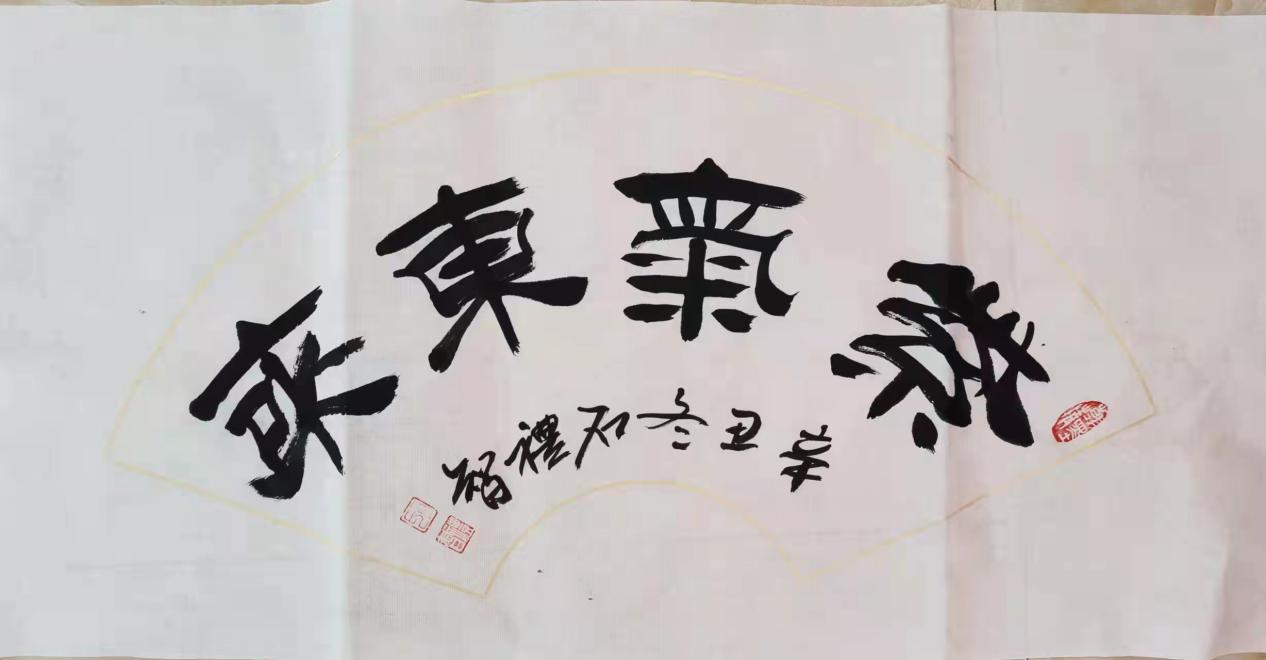 紫氣東來
辛丑冬石禮